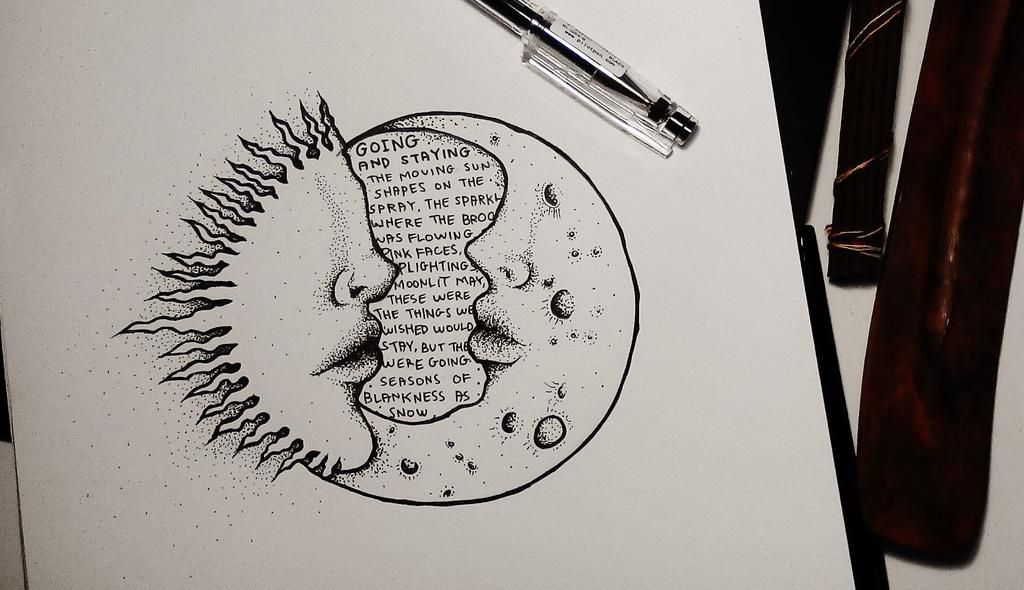 GOING
AND STAYING
THE MOVING SUN
SHAPES ON THE
SPRAY, THE SPARKL
WHERE THE BROO
WAS FLOWING
PINK FACES,
PLIGHTINGS
MOONLIT MAY,
THESE WERE
THE THINGS WE
WISHED WOULD
STAY, BUT THE
WERE GOING
SEASONS OF
BLANKNESS AS
SNOW,
www.pilotpen.com